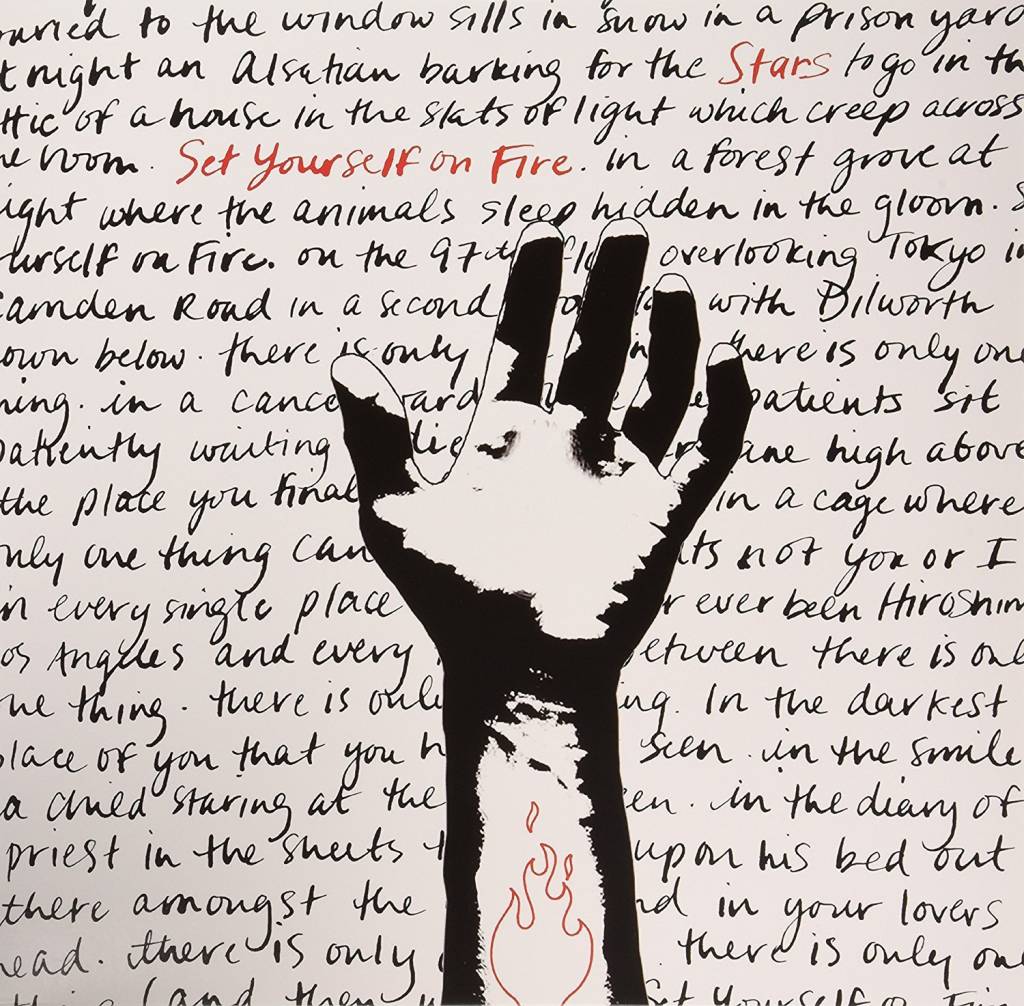 to the window sills in snow in a prison yard
night an Alsatian barking for the Stars to go in
of a house in the slats of light which creep across
room. Set Yourself on Fire. in a forest grove at
where the animals sleep hidden in the gloom.
on Fire. on the 97th overlooking Tokyo
Road in a second with Dilworth
below. there is only there is only
in a patients sit
patiently waiting high above
the place you in a cage where
one thing can not you or I
in every single place ever been
Angeles and every there is
thing. there is In the darkest
of you that you seen. in the smile
a child staring at the in the diary of
priest in the sheets upon his bed out
there amongst the in your lovers
there is only there is only
(and then Set Yourself on